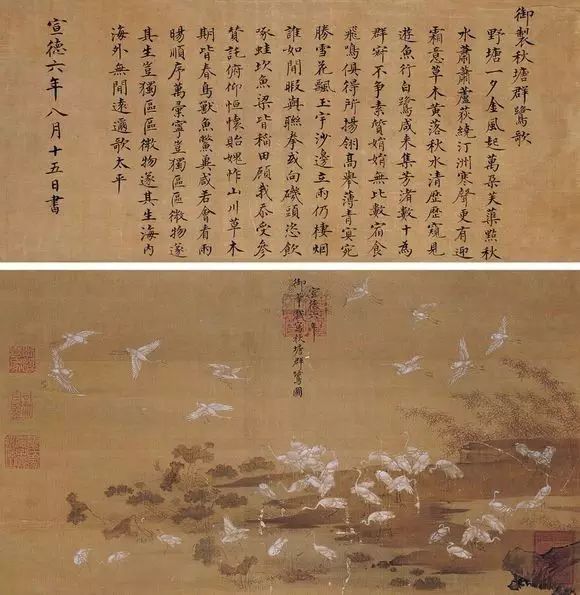 御製秋塘群鷺歌
野塘一夕金風起萬朵芙蕖點秋
水蕭蕭蘆荻繞汀洲寒聲更有迎
霜意草木黃落秋水清歷歷窺見
遊魚行白鷺咸来集芳渚數十為
群寂不爭素質娟娟無比數宿食
飛鳴俱得所揚翎高舉薄青冥宛
勝雪花飄玉宇沙邊立雨仍棲烟
誰如閒暇與聯拳或向磯頭恣飲
啄蛙坎魚梁皆稲田顧我忝受參
贊託俯仰恒懐貽媿怍山川草木
期皆春鳥獸魚鱉冀咸若會看雨
暘順序萬彙寧豈獨區區微物遂
其生豈獨區區微物遂其生海内
海外無閒遠邇歌太平
宣德六年八月十五日書
宣德六年
御筆戲寫秋塘群鷺圖